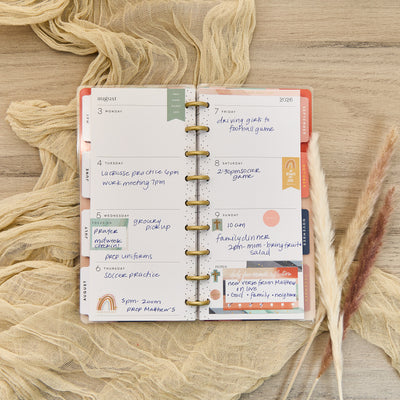 august
3 MONDAY
4 TUESDAY
lacrosse practice 6pm
work meeting 7pm
5 WEDNESDAY
prayer
midweek
grocery
pick up
prep uniforms
6 THURSDAY
soccer practice
5pm - zoom
prep Matthew 5
JULY
AUGUST
2026
7 FRIDAY
driving girls to
football game
8 SATURDAY
2:30pm soccer
game
9 SUNDAY
10am
family dinner
2pm - mom - bring fruit
salad
new verse from Matthew
on love
• God • family • neighbor